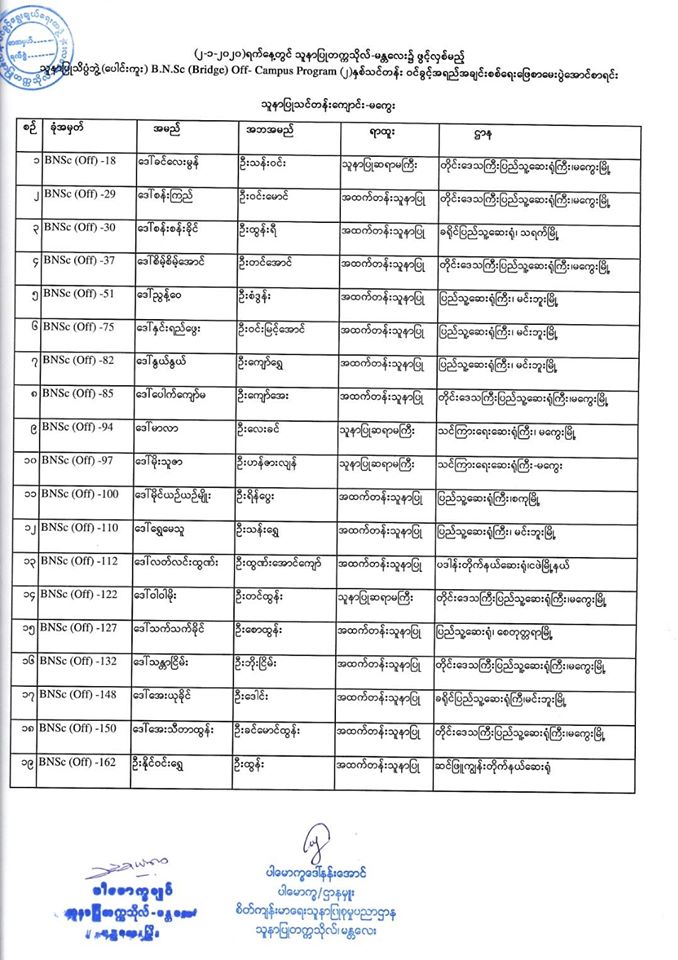 (၂-၁-၂၀၂၀)ရက်နေ့တွင် သူနာပြုတက္ကသိုလ်-မန္တလေး၌ ဖွင့်လှစ်မည့်
သူနာပြုသိပ္ပံဘွဲ့(ပေါင်းကူး) B.N.Sc (Bridge) Off- Campus Program (၂)နှစ်သင်တန်း ဝင်ခွင့်အရည်အချင်းစစ်ရေးဖြေစာမေးပွဲအောင်စာရင်း
သူနာပြုသင်တန်းကျောင်း-မကွေး
စဉ် ခုံအမှတ် အမည် အဘအမည် ရာထူး ဌာန
၁ BNSc (Off) -18 ဒေါ်ခင်လေးမွန် ဦးသန်းဝင်း သူနာပြုဆရာမကြီး တိုင်းဒေသကြီးပြည်သူ့ဆေးရုံကြီး၊မကွေးမြို့
၂ BNSc (Off) -29 ဒေါ်စန်းကြည် ဦးဝင်းမောင် အထက်တန်းသူနာပြု တိုင်းဒေသကြီးပြည်သူ့ဆေးရုံကြီး၊မကွေးမြို့
၃ BNSc (Off) -30 ဒေါ်စန်းစန်းခိုင် ဦးထွန်းရီ အထက်တန်းသူနာပြု ခရိုင်ပြည်သူ့ဆေးရုံ၊ သရက်မြို့
၄ BNSc (Off) -37 ဒေါ်စိမ့်စိမ့်အောင် ဦးတင်အောင် အထက်တန်းသူနာပြု တိုင်းဒေသကြီးပြည်သူ့ဆေးရုံကြီး၊မကွေးမြို့
၅ BNSc (Off) -51 ဒေါ်ညွန့်ဝေ ဦးစံဒွန်း အထက်တန်းသူနာပြု ပြည်သူ့ဆေးရုံကြီး၊ မင်းဘူးမြို့
၆ BNSc (Off) -75 ဒေါ်နှင်းရည်ဖွေး ဦးဝင်းမြင့်အောင် အထက်တန်းသူနာပြု ပြည်သူ့ဆေးရုံကြီး၊ မင်းဘူးမြို့
၇ BNSc (Off) -82 ဒေါ်နွယ်နွယ် ဦးကျော်ရွှေ အထက်တန်းသူနာပြု ပြည်သူ့ဆေးရုံကြီး၊ မင်းဘူးမြို့
၈ BNSc (Off) -85 ဒေါ်ပေါက်ကျော်မ ဦးကျော်အေး အထက်တန်းသူနာပြု တိုင်းဒေသကြီးပြည်သူ့ဆေးရုံကြီး၊မကွေးမြို့
၉ BNSc (Off) -94 ဒေါ်မာလာ ဦးလေးခင် သူနာပြုဆရာမကြီး သင်ကြားရေးဆေးရုံကြီး၊ မကွေးမြို့
၁၀ BNSc (Off) -97 ဒေါ်မိုးသူဇာ ဦးဟန်ဇားလျန် သူနာပြုဆရာမကြီး သင်ကြားရေးဆေးရုံကြီး-မကွေး
၁၁ BNSc (Off) -100 ဒေါ်မိုင်ယဉ်ယဉ်မျိုး ဦးရိန်ပွေး အထက်တန်းသူနာပြု ပြည်သူ့ဆေးရုံကြီး၊စကုမြို့
၁၂ BNSc (Off) -110 ဒေါ်ရွှေမေသူ ဦးသန်းရွှေ အထက်တန်းသူနာပြု ပြည်သူ့ဆေးရုံကြီး၊ မင်းဘူးမြို့
၁၃ BNSc (Off) -112 ဒေါ်လတ်လင်းထွဏ်း ဦးထွဏ်းအောင်ကျော် အထက်တန်းသူနာပြု ပဒါန်းတိုက်နယ်ဆေးရုံ၊ငဖဲမြို့နယ်
၁၄ BNSc (Off) -122 ဒေါ်ဝါဝါမိုး ဦးတင်ထွန်း သူနာပြုဆရာမကြီး တိုင်းဒေသကြီးပြည်သူ့ဆေးရုံကြီး၊မကွေးမြို့
၁၅ BNSc (Off) -127 ဒေါ်သက်သက်ခိုင် ဦးစောထွန်း အထက်တန်းသူနာပြု ပြည်သူ့ဆေးရုံ၊ စေတုတ္တရာမြို့
၁၆ BNSc (Off) -132 ဒေါ်သန္တာငြိမ်း ဦးဘိုးငြိမ်း အထက်တန်းသူနာပြု တိုင်းဒေသကြီးပြည်သူ့ဆေးရုံကြီး၊မကွေးမြို့
၁၇ BNSc (Off) -148 ဒေါ်အေးယုခိုင် ဦးဒေါင်း အထက်တန်းသူနာပြု ခရိုင်ပြည်သူ့ဆေးရုံကြီး၊မင်းဘူးမြို့
၁၈ BNSc (Off) -150 ဒေါ်အေးသီတာထွန်း ဦးခင်မောင်ထွန်း အထက်တန်းသူနာပြု တိုင်းဒေသကြီးပြည်သူ့ဆေးရုံကြီး၊မကွေးမြို့
၁၉ BNSc (Off) -162 ဦးနိုင်ဝင်းရွှေ ဦးထွန်း အထက်တန်းသူနာပြု ဆင်ဖြူကျွန်းတိုက်နယ်ဆေးရုံ
ပါမောက္ခချုပ်
သူနာပြုတက္ကသိုလ်-မန္တလေး
မန္တလေးမြို့
ပါမောက္ခဒေါ်နန်းအောင်
ပါမောက္ခ/ဌာနမှူး
စိတ်ကျန်းမာရေးသူနာပြုစုမှုပညာဌာန
သူနာပြုတက္ကသိုလ်၊မန္တလေး